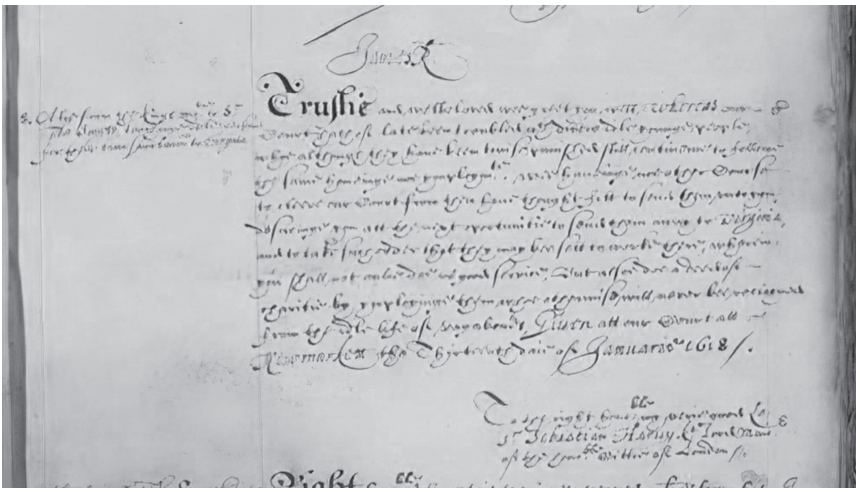 James R
from the Kings ma:tie to Sr
to Virginia
Trustie and welbeloved wee greet you well, Whereas our
Court hath of late been troubled wth divers idle younge people,
whoe although they have been twise punished still continewe to followe
the same haveinge noe ymploymte. Wee haveinge noe other Course
to cleere our Court from them have thought fitt to send them unto you
desireinge you att the next oportunitie to send them away to Virginia,
and to take such order that they may bee sett to worke there, wherein
you shall not onlie doe us good service, But alsoe doe a deed of
charitie by ymployinge them whoe otherwise will never bee reclaimed
from the idle life of vagabonds, Given att our Court att
Newmarkett the Thirteenth daie of Januarie 1618 /.
To the right honoble my verie good Lo:
Sr Sebastian Harvy Kt Lord Maior
of the honoble Cittie of London /.
Right